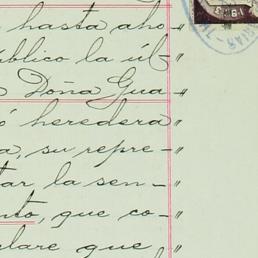 hasta aho-"
público la úl-"
Doña Gua-"
ó heredera "
a, su repre-"
tar, la sen-"
ento, que co-"
clare que "